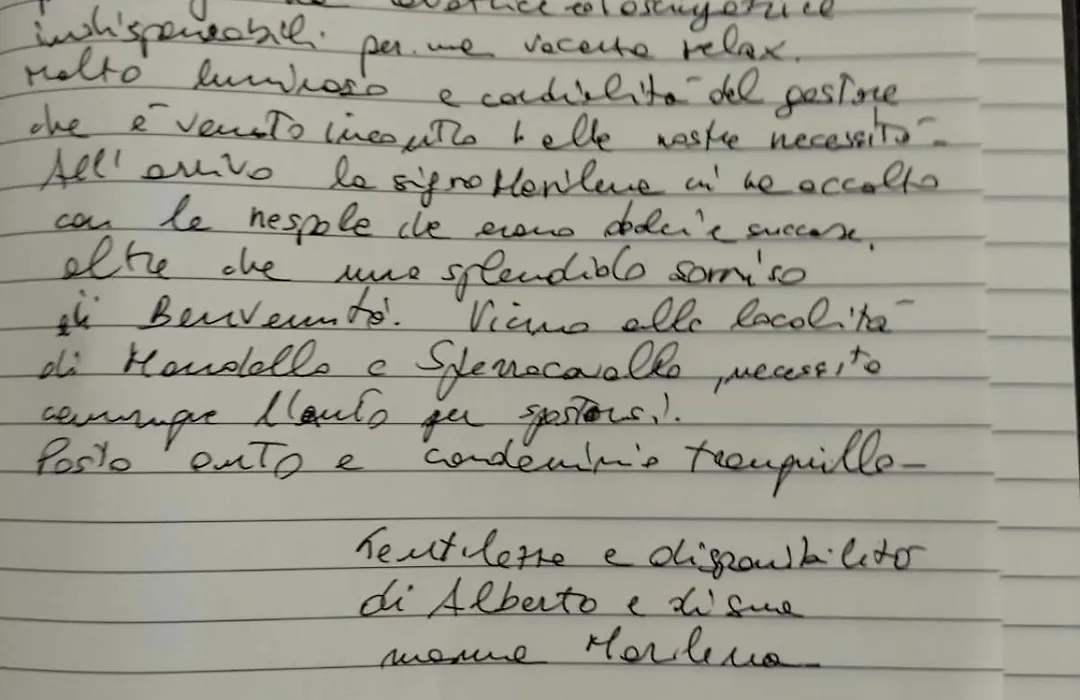 lavatrice e lo asciugatrice
indispensabili. per una vacanza relax.
Molto luminoso e cordialità del gestore
che è venuto incontro alle nostre necessità-
All'arrivo la signora Marilena ci ha accolto
con le nespole che erano dolci e succose,
oltre che uno splendido sorriso
di Benvenuto. Vicino alle località
di Mondello e Sferracavallo, necessita
comunque l'auto per spostarsi.
Posto auto e condominio tranquillo-
Gentilezza e disponibilità
di Alberto e di sua
mamma Marilena-